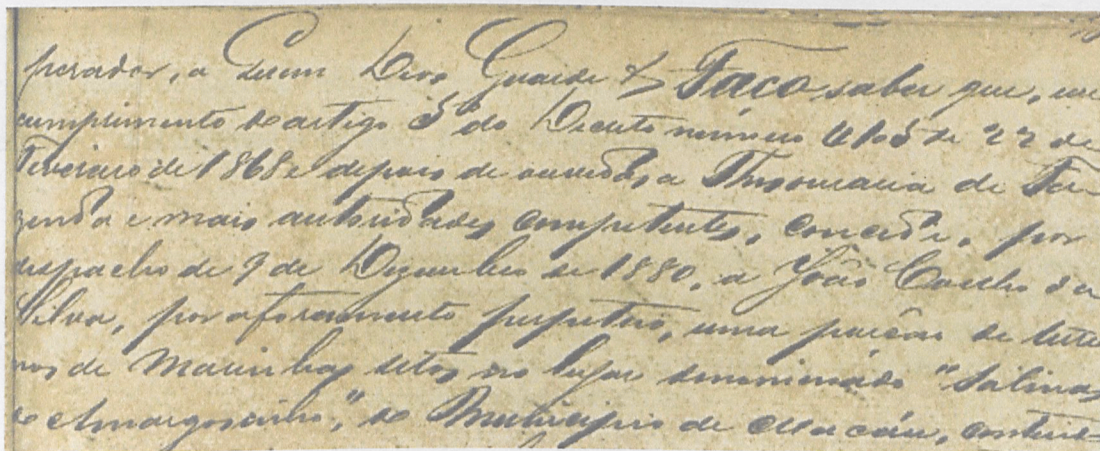 perador, a Quem Deos Guarde &. Faço saber que, em
cumprimento do artigo 5º do Decreto número 4105 de 22 de
Fevereiro de 1868 e depois de ouvidas a Thesouraria de Fa-
zenda e mais autoridades competentes, concede, por
despacho de 9 de Dezembro de 1880, a João Coelho da
Silva, por aforamento perpetuo, uma porção de terre
nos de Marinhas sitos no lugar denominado "Salinas
do Amargosinho", do Municipio de Macáu,